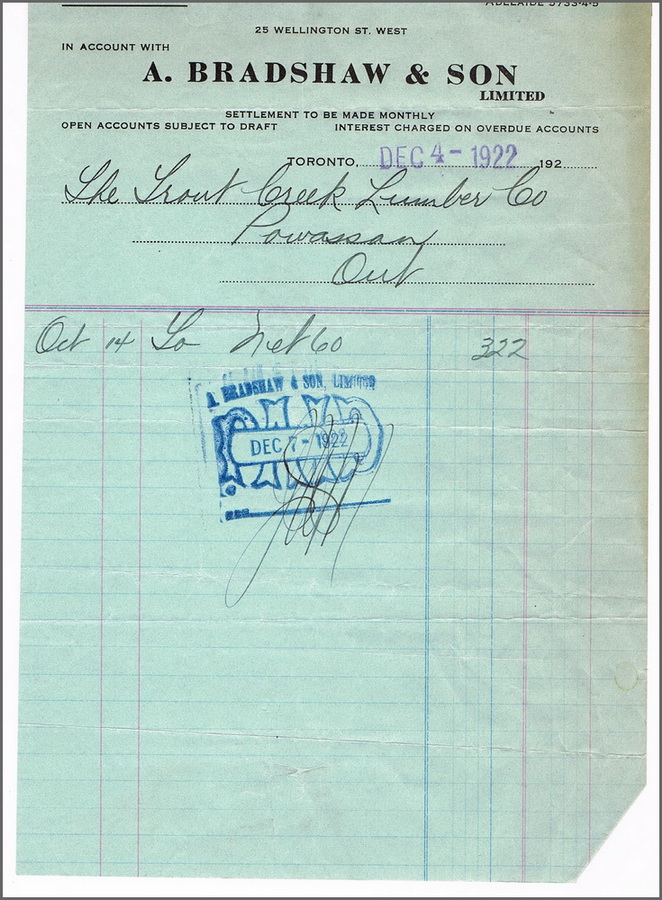 ADELAIDE 5733-4-5
25 WELLINGTON ST. WEST
IN ACCOUNT WITH
A. BRADSHAW & SON
LIMITED
SETTLEMENT TO BE MADE MONTHLY
OPEN ACCOUNTS SUBJECT TO DRAFT INTEREST CHARGED ON OVERDUE ACCOUNTS
TORONTO, DEC 4 - 1922 192
The Trout Creek Lumber Co
Powassan
Ont
Oct 14 To Net 60 322
A. BRADSHAW & SON, LIMITED
DEC 7 - 1922